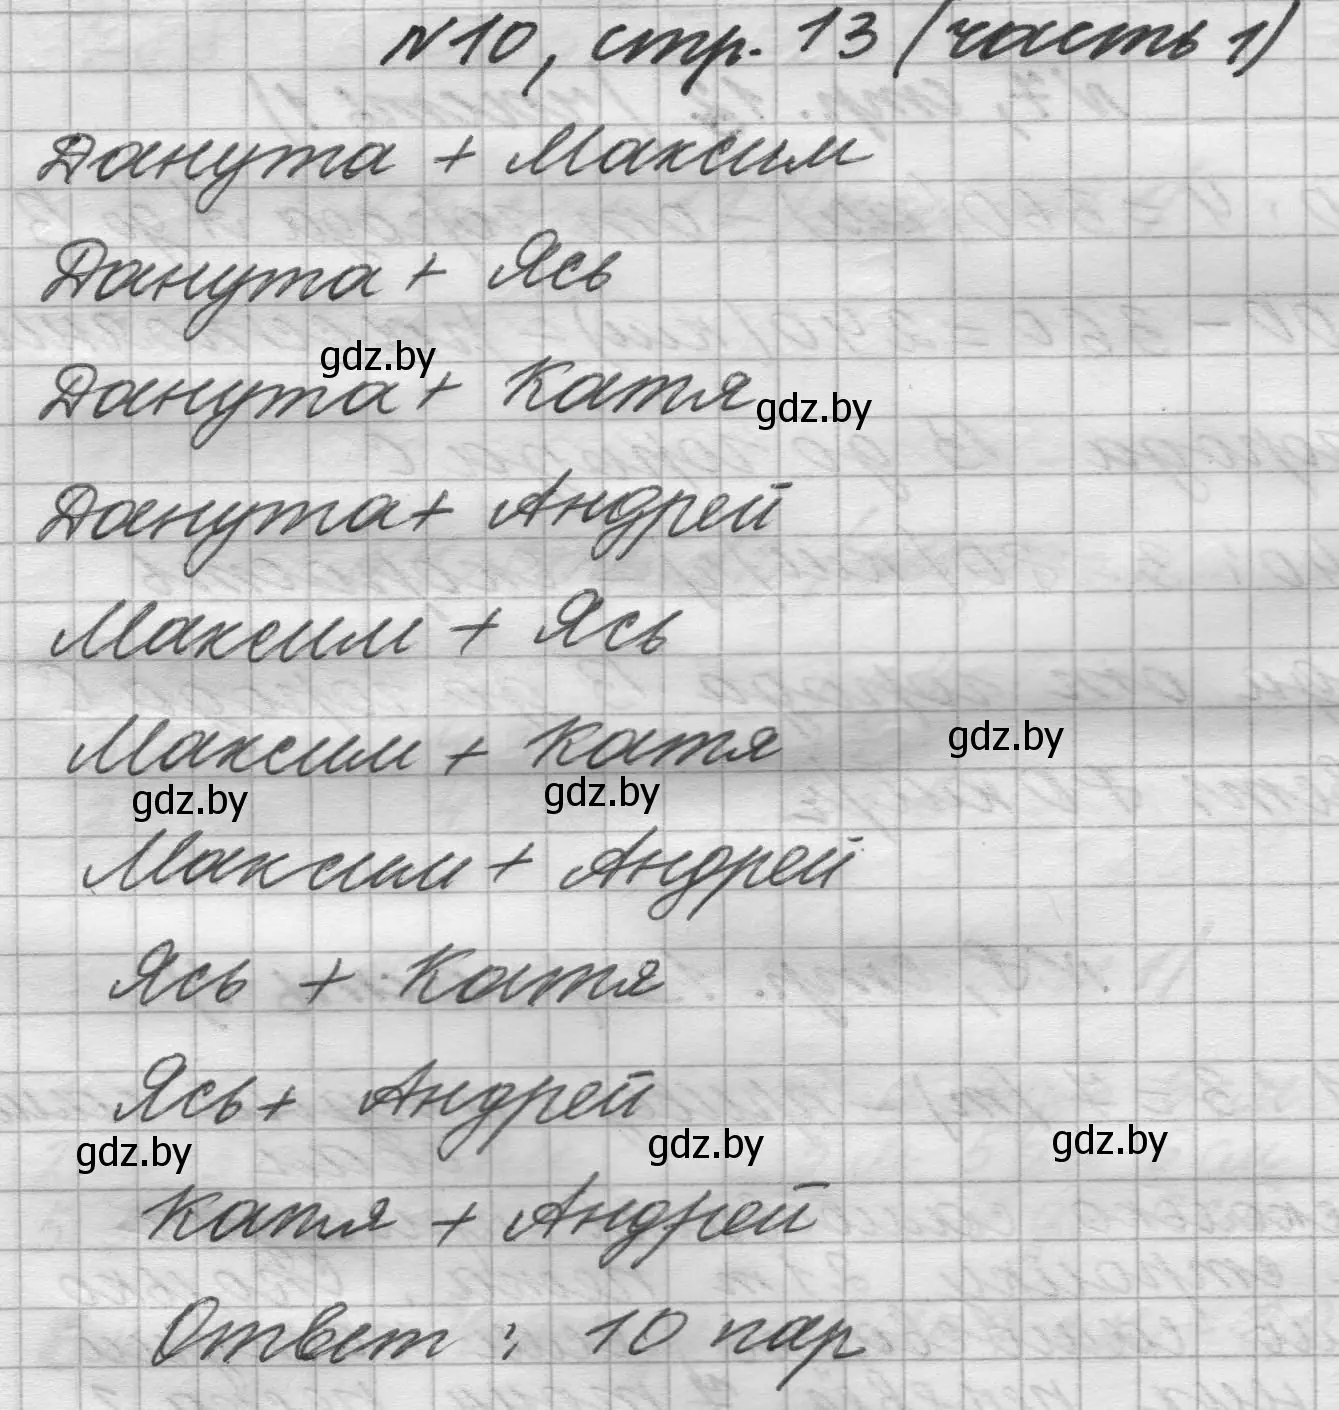 №10, стр. 13 (часть 1)
Данута + Максим
Данута + Ясь
gdz.by
Данута + Катя
gdz.by
Данута + Андрей
Максим + Ясь
Максим + Катя
gdz.by
gdz.by
gdz.by
Максим + Андрей
Ясь + Катя
Ясь + Андрей
gdz.by
gdz.by
gdz.by
Катя + Андрей
Ответ: 10 пар